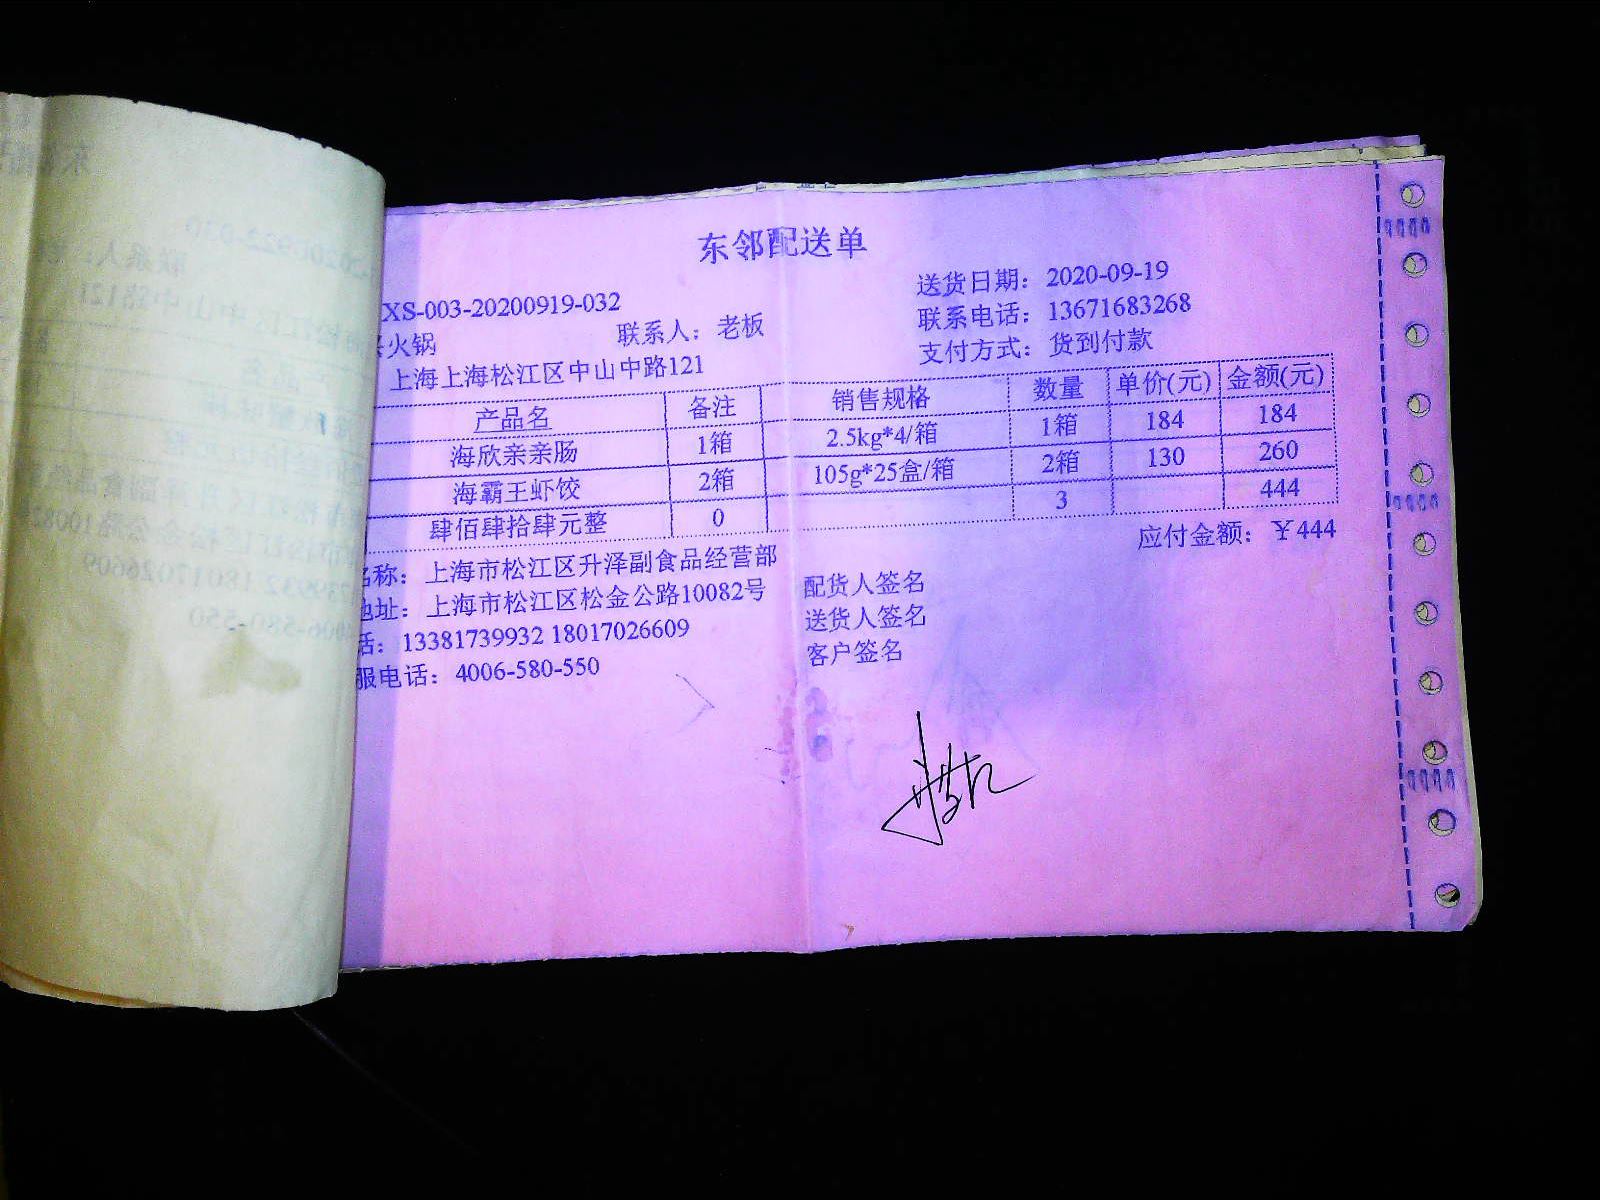 东邻配送单
XS-003-20200919-032 送货日期：2020-09-19
火锅 联系人：老板 联系电话：13671683268
上海上海松江区中山中路121 支付方式：货到付款
产品名 备注 销售规格 数量 单价(元) 金额(元)
海欣亲亲肠 1箱 2.5kg*4/箱 1箱 184 184
海霸王虾饺 2箱 105g*25盒/箱 2箱 130 260
肆佰肆拾肆元整 0 3 444
应付金额：￥444
名称：上海市松江区升泽副食品经营部 配货人签名
地址：上海市松江区松金公路10082号 送货人签名
话：13381739932 18017026609 客户签名
服电话：4006-580-550